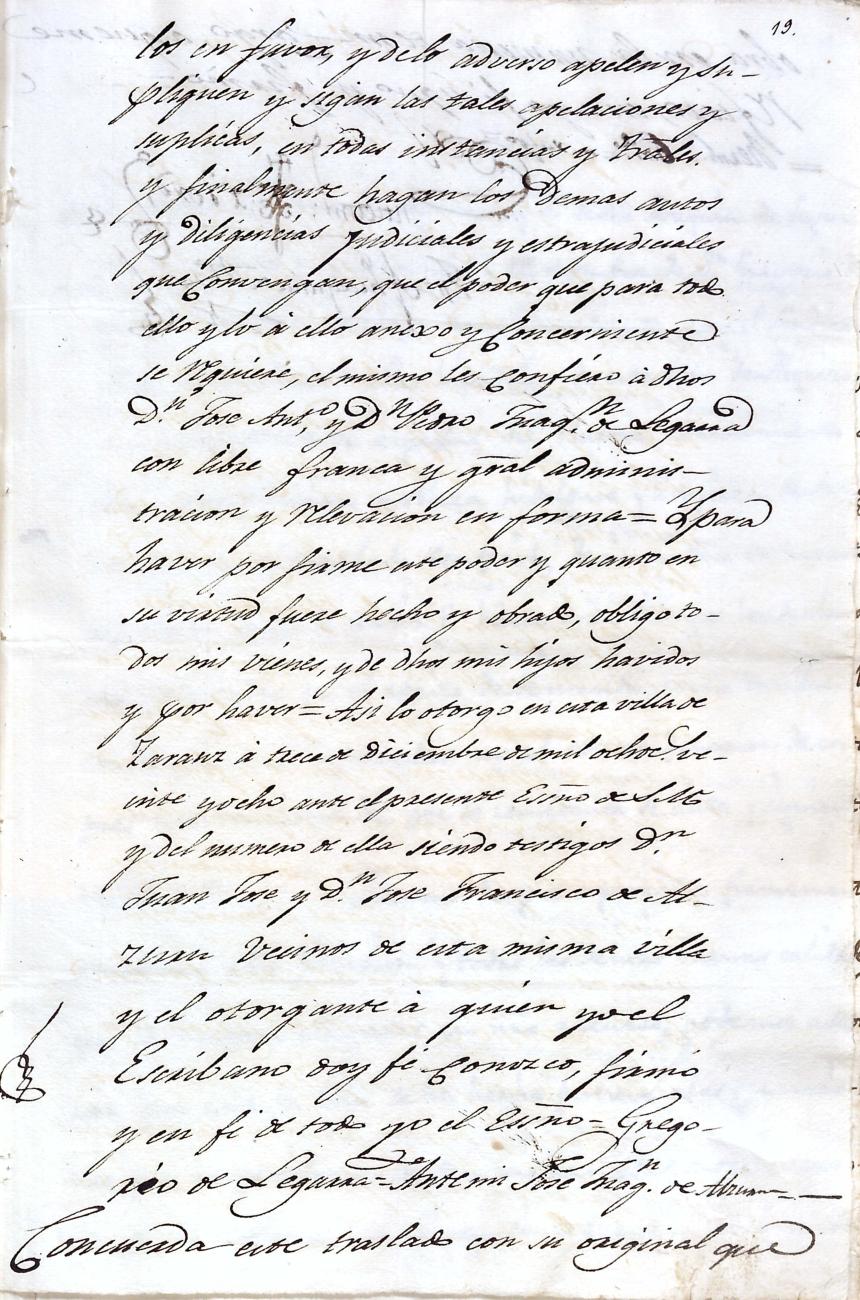 19.
los en favor, y de lo adverso apelen y su-
pliquen y sigan las tales apelaciones y
suplicas, en todas instancias y Trãles.
y finalmente hagan los Demas autos
y Diligencias Judiciales y estrajudiciales
que Convengan, que el poder que para todo
ello y lo à ello anexo y Concerniente
se requiere, el mismo les Confiero à dhos
D.n Jose Ant.o, y D.n Pedro Ynaq.n de Legarra
con libre franca y gr̃al adminis-
tracion y relevacion en forma = Y para
haver por firme este poder y quanto en
su virtud fuere hecho y obrado, obligo to-
dos mis vienes, y de dhos mis hijos havidos
y por haver = Asi lo otorgo en esta villa de
Zarauz à trece de Diciembre de mil ochoc.s ve-
inte y ocho ante el presente Esñno de S.M.
y del numero de ella siendo testigos D.n
Juan Jose y D.n Jose Francisco de Al-
zuru Vecinos de esta misma villa
y el otorgante à quien yo el
Escribano doy fé Conozco, firmó
y en fé de todo yo el Esñno = Grego-
rio de Legarra = Ante mi Jose Ynaq.n de
Concuerda este traslado con su original que